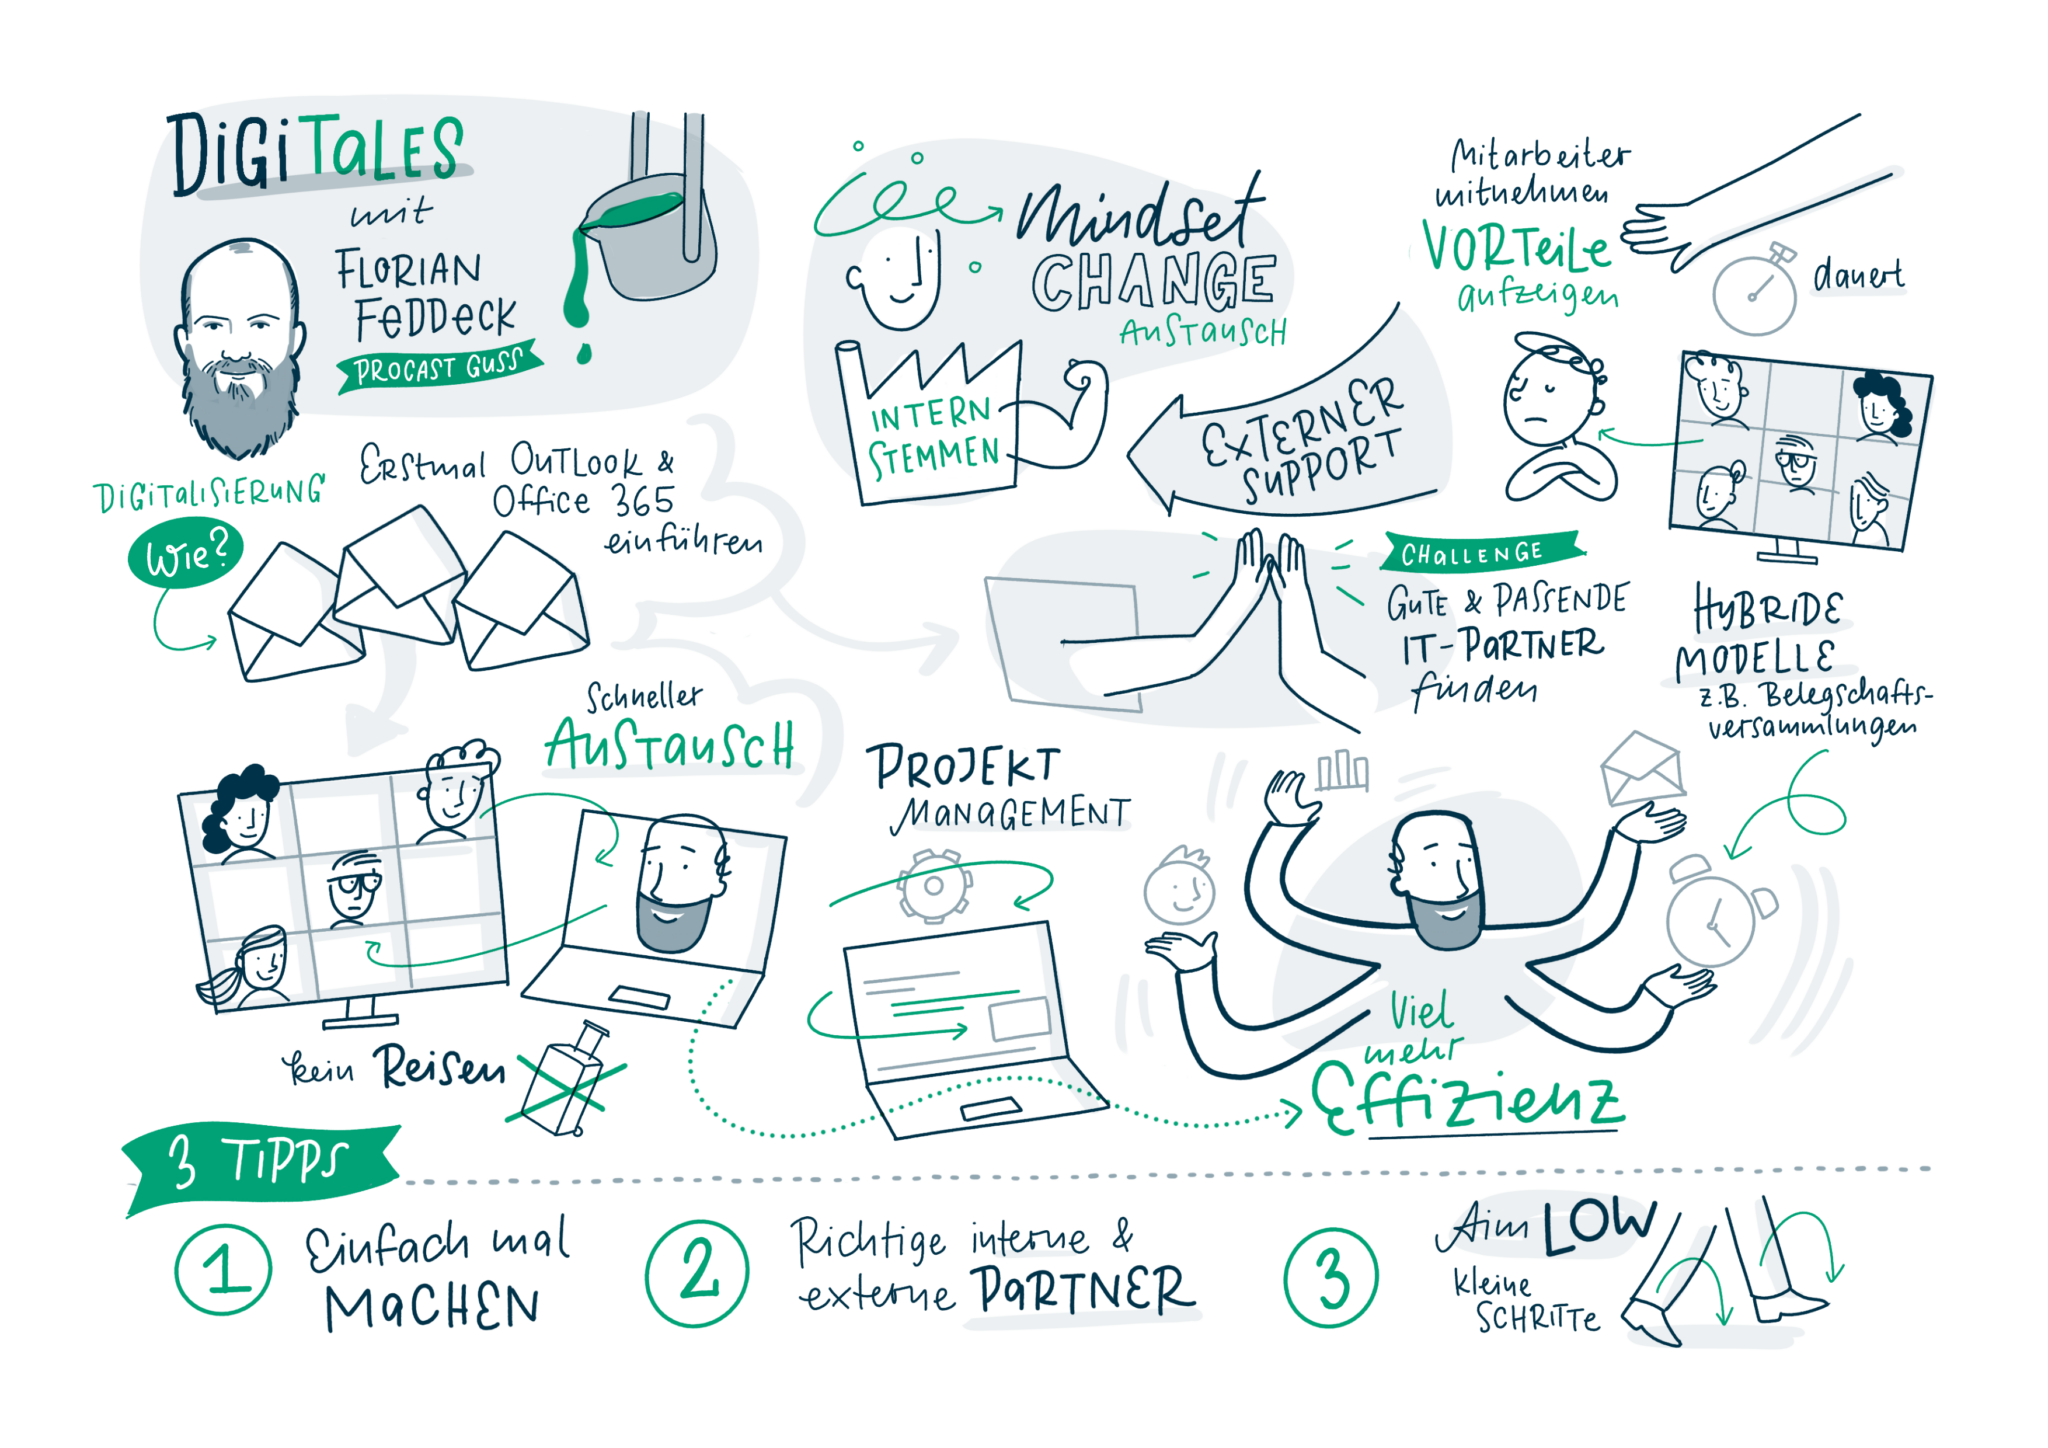 DiGiTaLES
mit
FLORIAN
FeDDecK
PROCAST GUSS
DiGiTaLiSiERUNG
Wie?
ERSTmal OuTLooK &
Office 365
einführen
Schneller
AuSTauSCH
kein Reisen
mindset
CHANGE
AuSTauSCH
INTERN
STEMMEN
EXTERNER
SuPPORT
Mitarbeiter
mitnehmen
VORTeiLe
aufzeigen
dauert
CHaLLENGE
GuTE & PASSENDE
IT-PaRTNER
finden
HyBRIDE
MODELLE
z.B. Belegschafts-
versammlungen
PROJEKT
MaNaGEMENT
Viel
mehr
Effizienz
3 TiPPS
1
Einfach mal
MaCHEN
2
Richtige interne &
externe PaRTNER
3
Aim LOW
kleine
SCHRiTTe